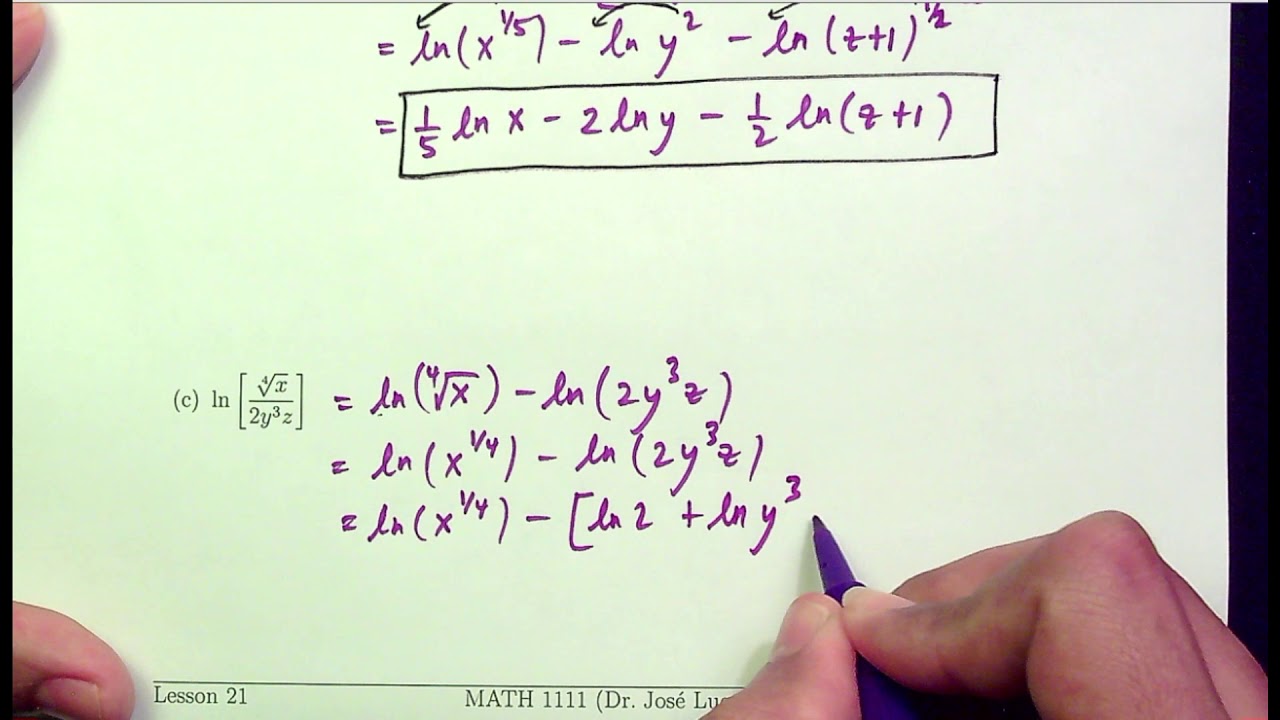 = ln(x^1/5) - ln y^2 - ln (z+1)^1/2
= 1/5 ln x - 2 ln y - 1/2 ln(z+1)
(c) ln [∜x / 2y³z] = ln(∜x) - ln(2y³z)
= ln(x^1/4) - ln(2y³z)
= ln(x^1/4) - [ln 2 + ln y³
Lesson 21
MATH 1111 (Dr. José Luc